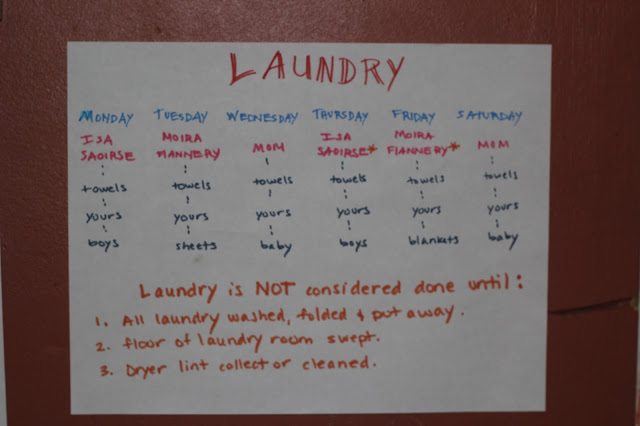 LAUNDRY
MONDAY TUESDAY WEDNESDAY THURSDAY FRIDAY SATURDAY
ISA MOIRA ISA MOIRA
SAOIRSE FIANNERY MOM SAOIRSE* FIANNERY* MOM
towels towels towels towels towels towels
yours yours yours yours yours yours
boys sheets baby boys blankets baby
Laundry is NOT considered done until:
1. All laundry washed, folded & put away.
2. floor of laundry room swept.
3. Dryer lint collector cleaned.